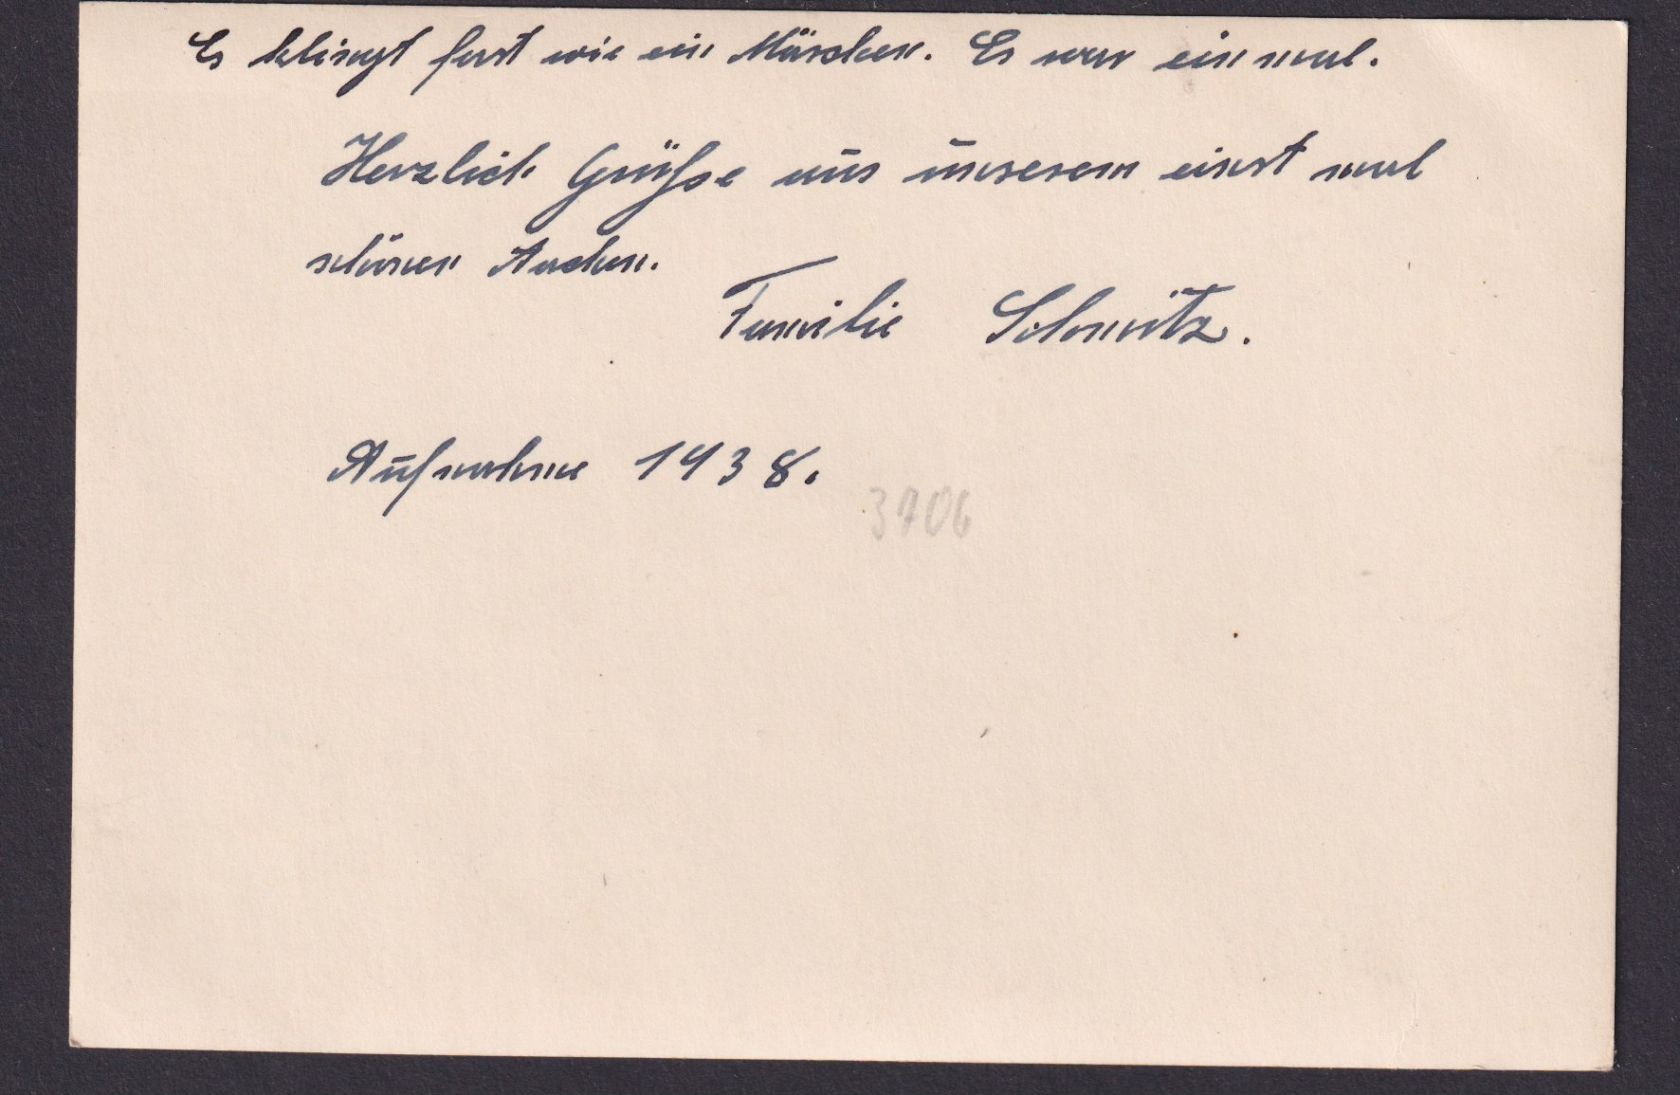 Es klingt fast wie ein Märchen. Es war ein mal.
Herzlich Grüße aus unserem einst mal
schönen Aachen.
Familie Schmitz.
Aufnahme 1938.
3706